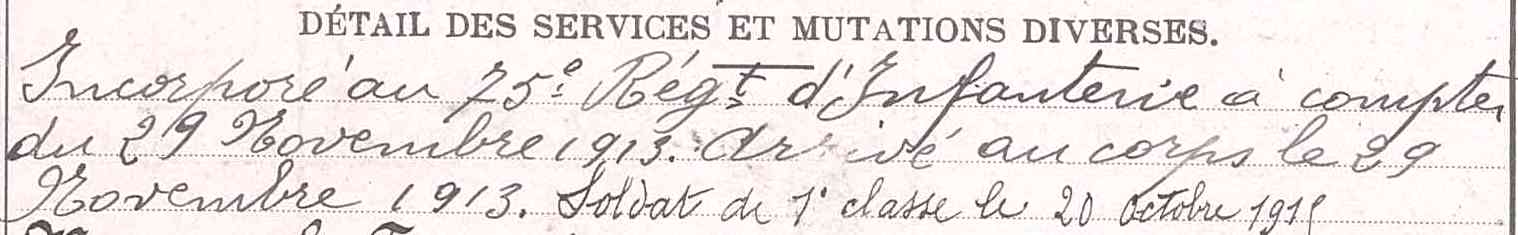 DÉTAIL DES SERVICES ET MUTATIONS DIVERSES.
Incorporé au 75e Régt d'Infanterie à compter
du 29 Novembre 1913. Arrivé au corps le 29
Novembre 1913. Soldat de 1e classe le 20 octobre 1915